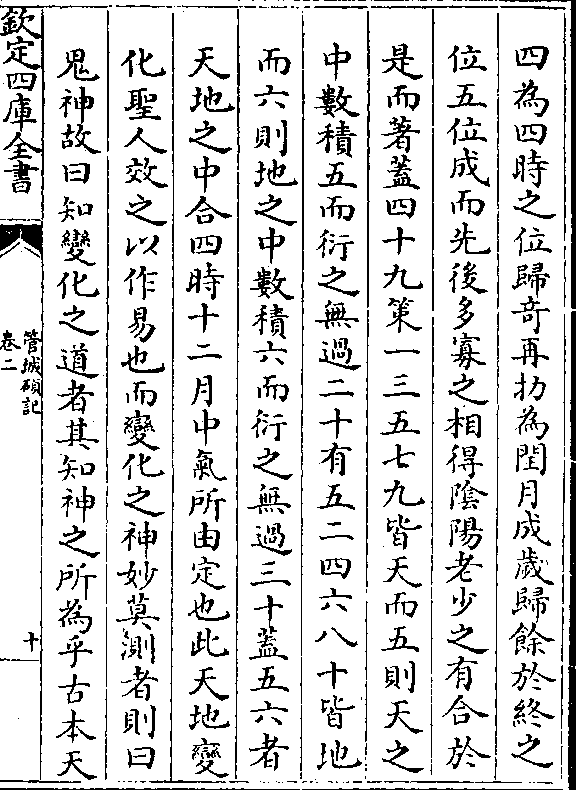 四為四時之位歸奇再扐為閏月成歲歸餘於終之
位五位成而先後多寡之相得陰陽老少之有合於
是而著蓋四十九策一三五七九皆天而五則天之
中數積五而衍之無過二十有五二四六八十皆地
而六則地之中數積六而衍之無過三十蓋五六者
天地之中合四時十二月中氣所由定也此天地變
化聖人效之以作易也而變化之神妙莫測者則曰
鬼神故曰知變化之道者其知神之所為乎古本天
欽定四庫全書
管城碩記
卷二
十